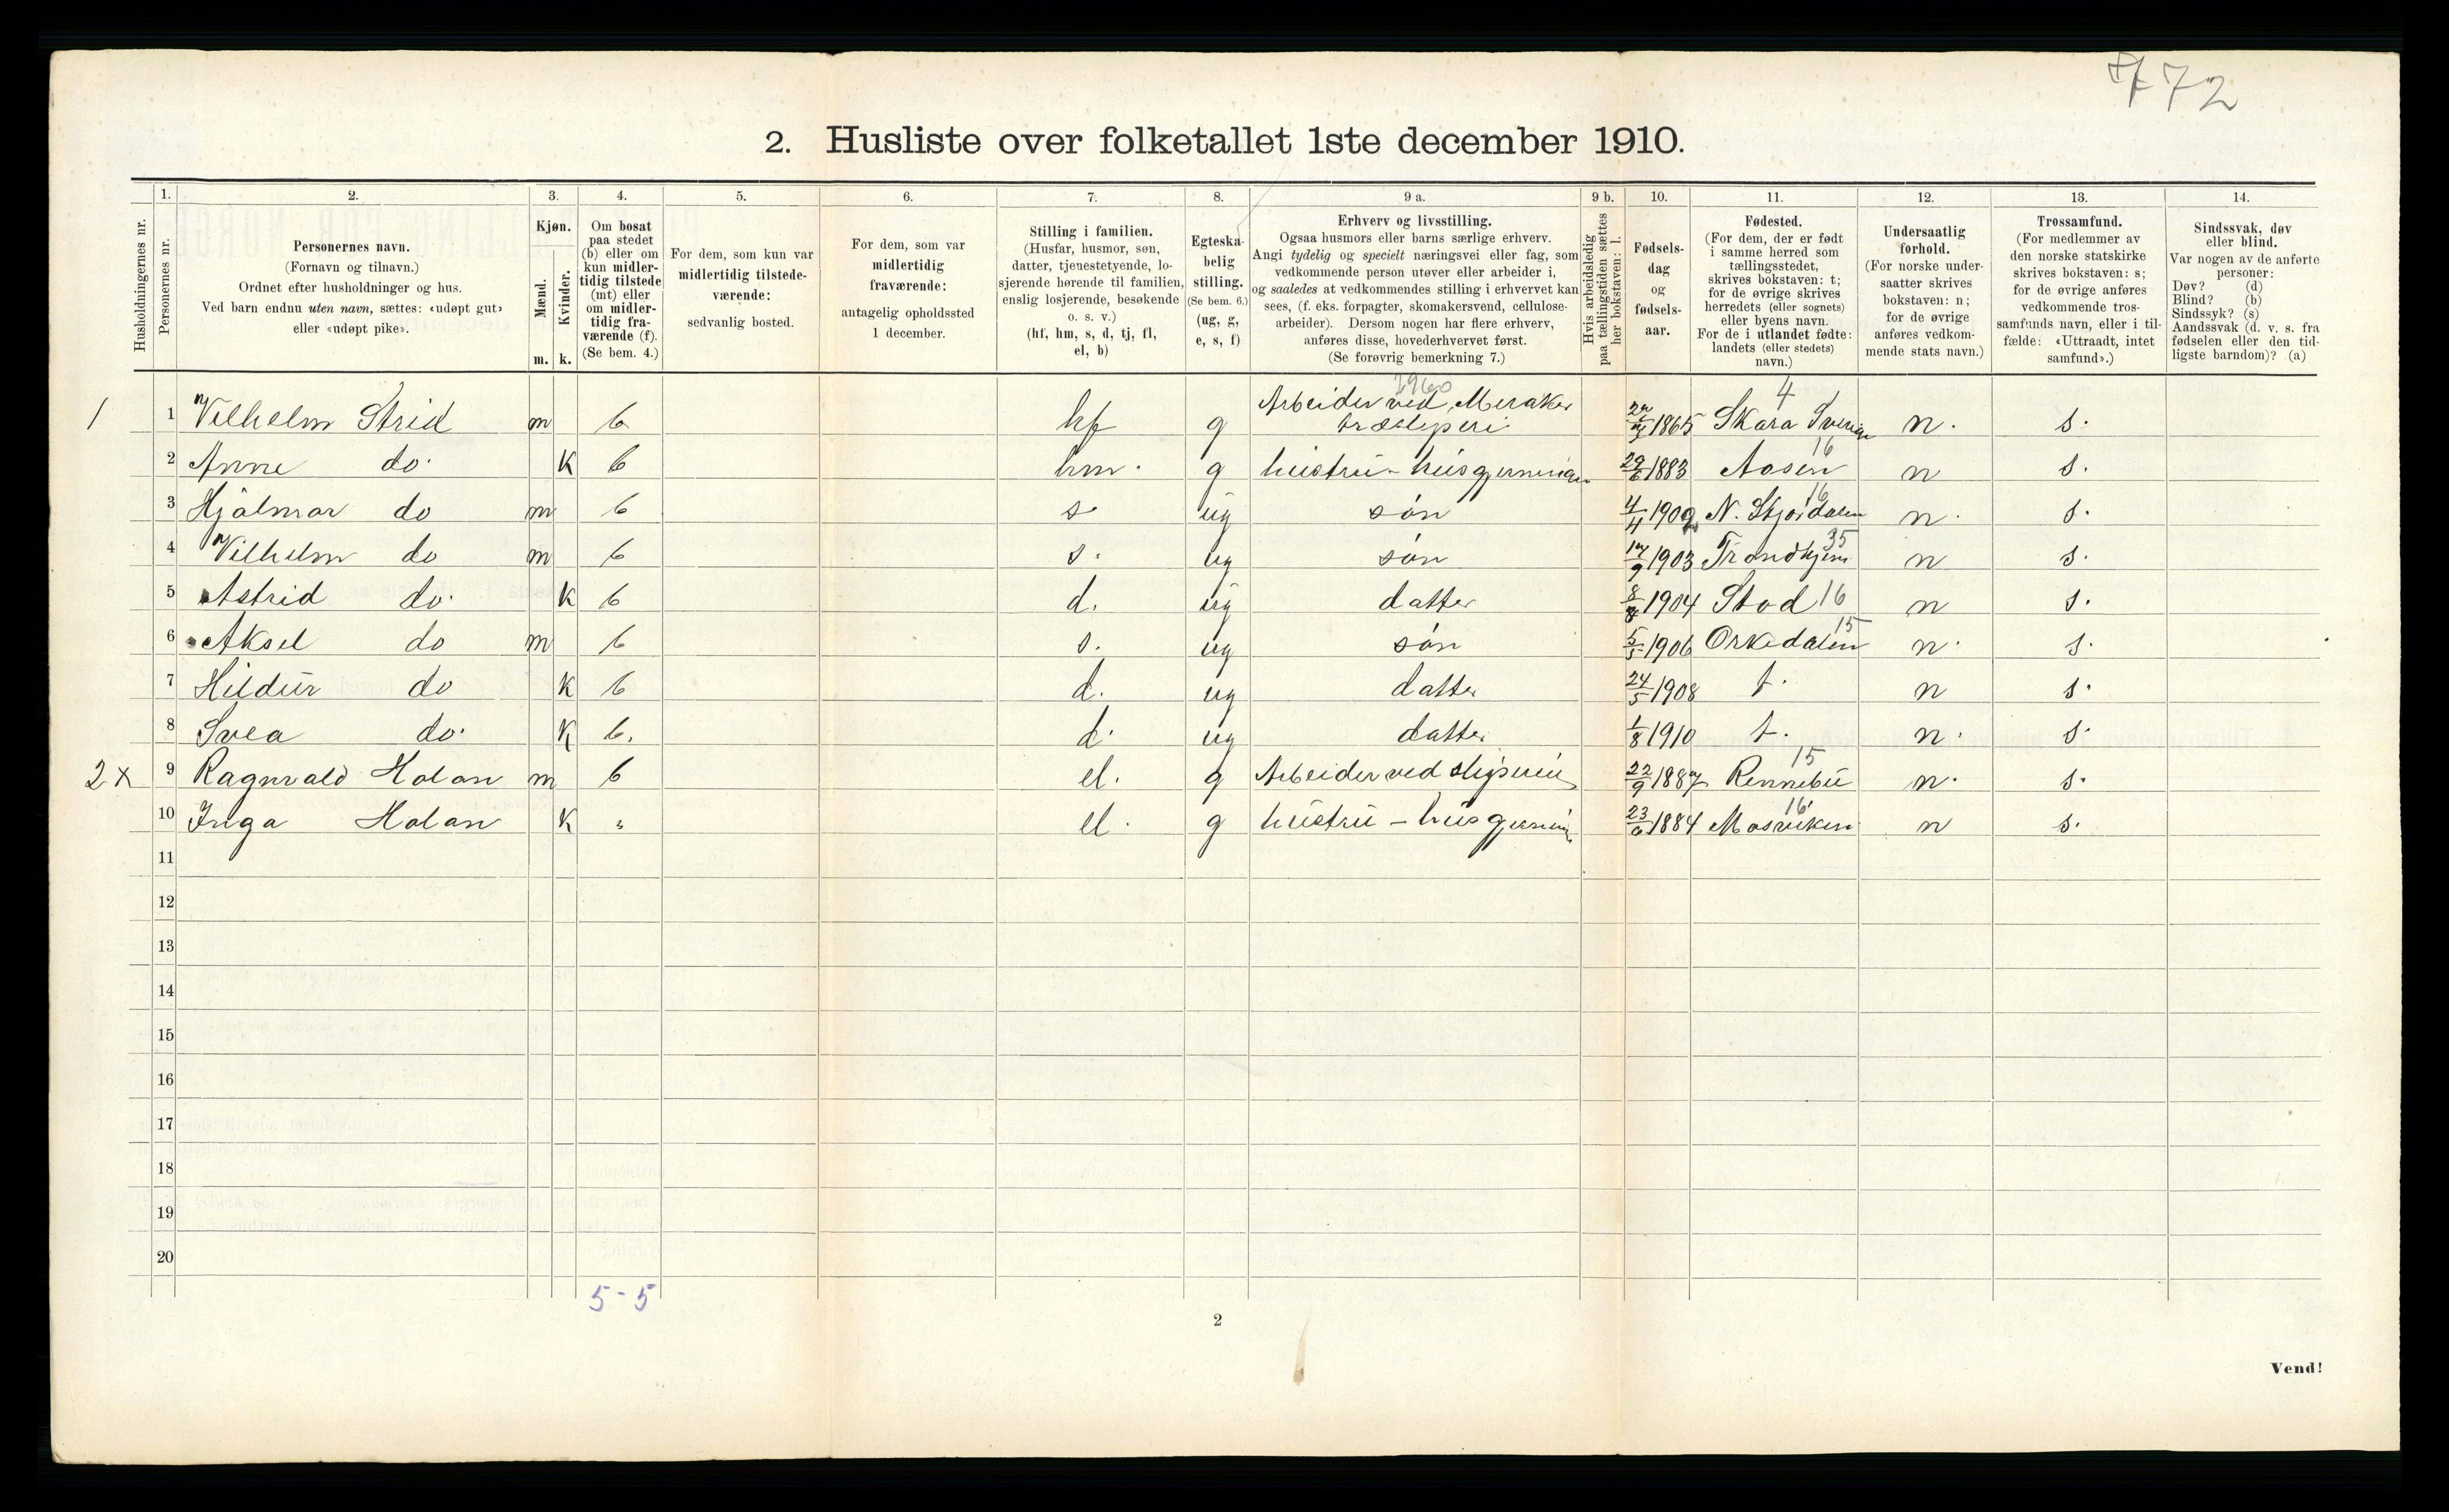 772
2. Husliste over folketallet 1ste december 1910.
Husholdningernes nr.
1. Personernes nr.
2. Personernes navn.
(Fornavn og tilnavn.)
Ordnet efter husholdninger og hus.
Ved barn endnu uten navn, sættes: «udøpt gut»
eller «udøpt pike».
3. Kjøn.
Mænd. m.
Kvinder. k.
4. Om bosat
paa stedet
(b) eller om
kun midler-
tidig tilstede
(mt) eller
om midler-
tidig fra-
værende (f).
(Se bem. 4.)
5. For dem, som kun var
midlertidig tilstede-
værende:
sedvanlig bosted.
6. For dem, som var
midlertidig
fraværende:
antagelig opholdssted
1 december.
7. Stilling i familien.
(Husfar, husmor, søn,
datter, tjenestetyende, lo-
sjerende hørende til familien,
enslig losjerende, besøkende
o. s. v.)
(hf, hm, s, d, tj, fl,
el, b)
8. Egteska-
belig
stilling.
(Se bem. 6.)
(ug, g,
e, s, f)
9 a. Erhverv og livsstilling.
Ogsaa husmors eller barns særlige erhverv.
Angi tydelig og specielt næringsvei eller fag, som
vedkommende person utøver eller arbeider i,
og saaledes at vedkommendes stilling i erhvervet kan
sees, (f. eks. forpagter, skomakersvend, cellulose-
arbeider). Dersom nogen har flere erhverv,
anføres disse, hovederhvervet først.
(Se forøvrig bemerkning 7.)
9 b. Hvis arbeidsledig
paa tællingstiden sættes
her bokstaven: l.
10. Fødsels-
dag
og
fødsels-
aar.
11. Fødested.
(For dem, der er født
i samme herred som
tællingsstedet,
skrives bokstaven: t;
for de øvrige skrives
herredets (eller sognets)
eller byens navn.
For de i utlandet fødte:
landets (eller stedets)
navn.)
12. Undersaatlig
forhold.
(For norske under-
saatter skrives
bokstaven: n;
for de øvrige
anføres vedkom-
mende stats navn.)
13. Trossamfund.
(For medlemmer av
den norske statskirke
skrives bokstaven: s;
for de øvrige anføres
vedkommende tros-
samfunds navn, eller i til-
fælde: «Uttraadt, intet
samfund».)
14. Sindssvak, døv
eller blind.
Var nogen av de anførte
personer:
Døv? (d)
Blind? (b)
Sindssyk? (s)
Aandssvak (d. v. s. fra
fødselen eller den tid-
ligste barndom)? (a)
2960 4
1 1 Vilhelm Strid m b hf g Arbeider ved Meraker træsliperi 1865 Skara Sverige n. s.
2 Anne do. k b hm. g hustru - husgjerning 29/6 1883 Aasen 16 n s.
3 Hjalmar do m b s ug søn 4/4 1902 N. Stjørdalen 16 n. s.
4 Vilhelm do m b s. ug søn 17/9 1903 Trondhjem 35 n s.
5 Astrid do. k b d. ug datter 1904 Stod 16 n s.
6 Aksel do m b s. ug søn 5/5 1906 Orkedalen 15 n. s.
7 Hildur do k b d. ug datter 24/5 1908 t. n s.
8 Svea do. k b. d. ug datter 1/8 1910 t. n. s.
2 x 9 Ragnvald Holan m b el. g Arbeider ved sliperiet 22/9 1887 Rennebu 15 n. s.
10 Inga Holan k " el. g hustru - husgjerning 23/6 1884 Mosviken 16 n s.
11
12
13
14
15
16
17
18
19
20
5-5
2
Vend!